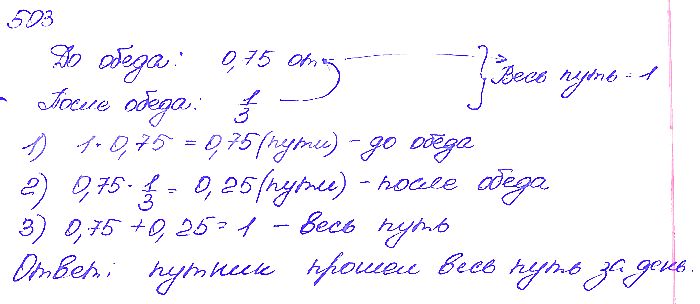 503
До обеда: 0,75 от
Весь путь - 1
После обеда: 1/3
1) 1 · 0,75 = 0,75 (пути) - до обеда
2) 0,75 · 1/3 = 0,25 (пути) - после обеда
3) 0,75 + 0,25 = 1 - весь путь
Ответ: путник прошел весь путь за день.